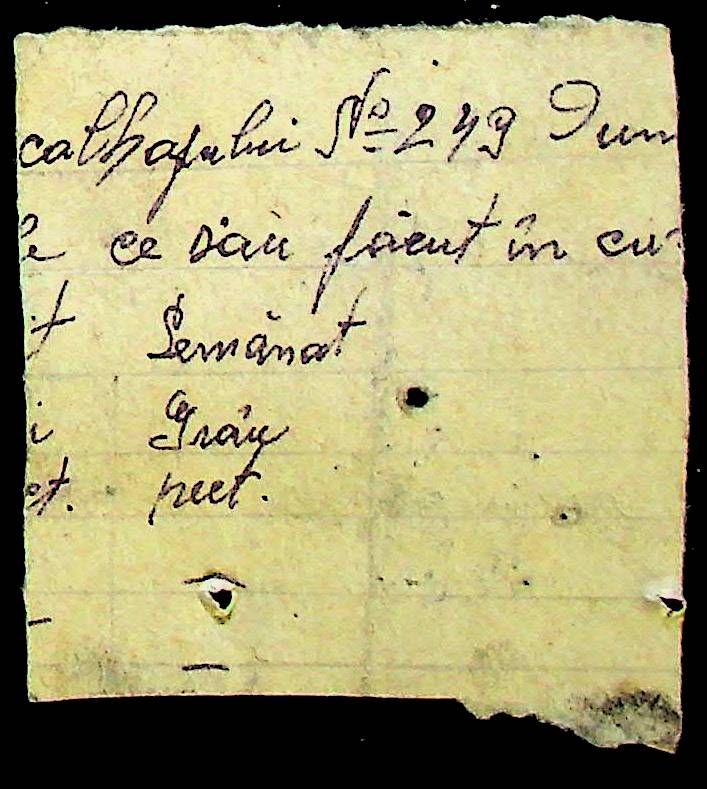 colhozului № 249 Dum
le ce s'au făcut în cu
t Semănat
i Grâu
et. pect.
—
— —